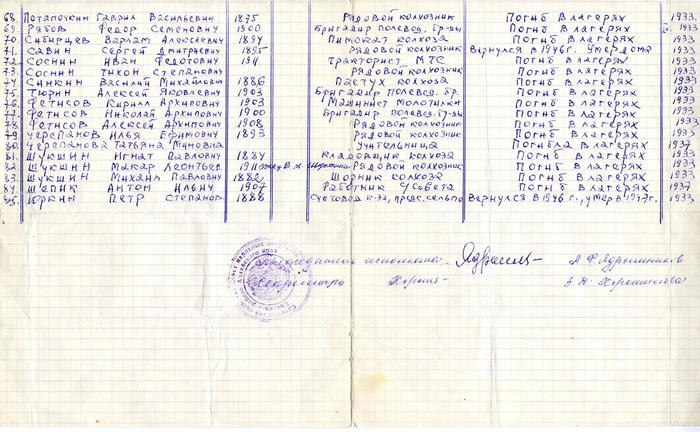 68. Потапочкин Гаврил Васильевич 1875 Рядовой колхозник Погиб в лагерях 1933.
69. Рябов Федор Семенович 1900 Бригадир полевод. бр-ды Погиб в лагерях 1933
70. Сибирцев Варлам Алексеевич 1894 Пимокат колхоза Погиб в лагерях 1933
71. Савин Сергей Дмитриевич 1895 Рядовой колхозник Вернулся в 1946 г. Умер дома 1933
72. Соснин Иван Федотович 1911 Тракторист МТС Погиб в лагерях 1933
73. Соснин Тихон Степанович Рядовой колхозник Погиб в лагерях 1933
74. Санкин Василий Михайлович 1886 Пастух колхоза Погиб в лагерях 1933
75. Тюрин Алексей Яковлевич 1903 Бригадир полевод. бр. Погиб в лагерях 1933
76. Фетисов Кирилл Архипович 1903 Машинист молотилки Погиб в лагерях 1933
77. Фетисов Николай Архипович 1900 Бригадир полевод. бр-ды Погиб в лагерях 1933
78. Фетисов Алексей Архипович 1908 Рядовой колхозник Погиб в лагерях 1933
79. Черепанов Илья Ефимович 1893 Рядовой колхозник Погиб в лагерях 1933
80. Черепанова Татьяна Учительница Погибла в лагерях 1937
81. Шукшин Игнат Павлович 1884 Кладовщик колхоза Погиб в лагерях 1933
82. Шукшин Макар Леонтьев. отец В. М. Шукшина Рядовой колхозник Погиб в лагерях 1933
83. Шукшин Михаил Павлович 1882 Шорник колхоза Погиб в лагерях 1933
84. Шепик Антон Ильич 1907 Работник с/совета Погиб в лагерях 1937
85. Юркин Петр Степанов. 1888 Счетовод к-за, пред. сельпо Вернулся в 1946 г., умер в 1947 г. 1933
Председатель исполкома А Ф Ядрышников
Секретарь